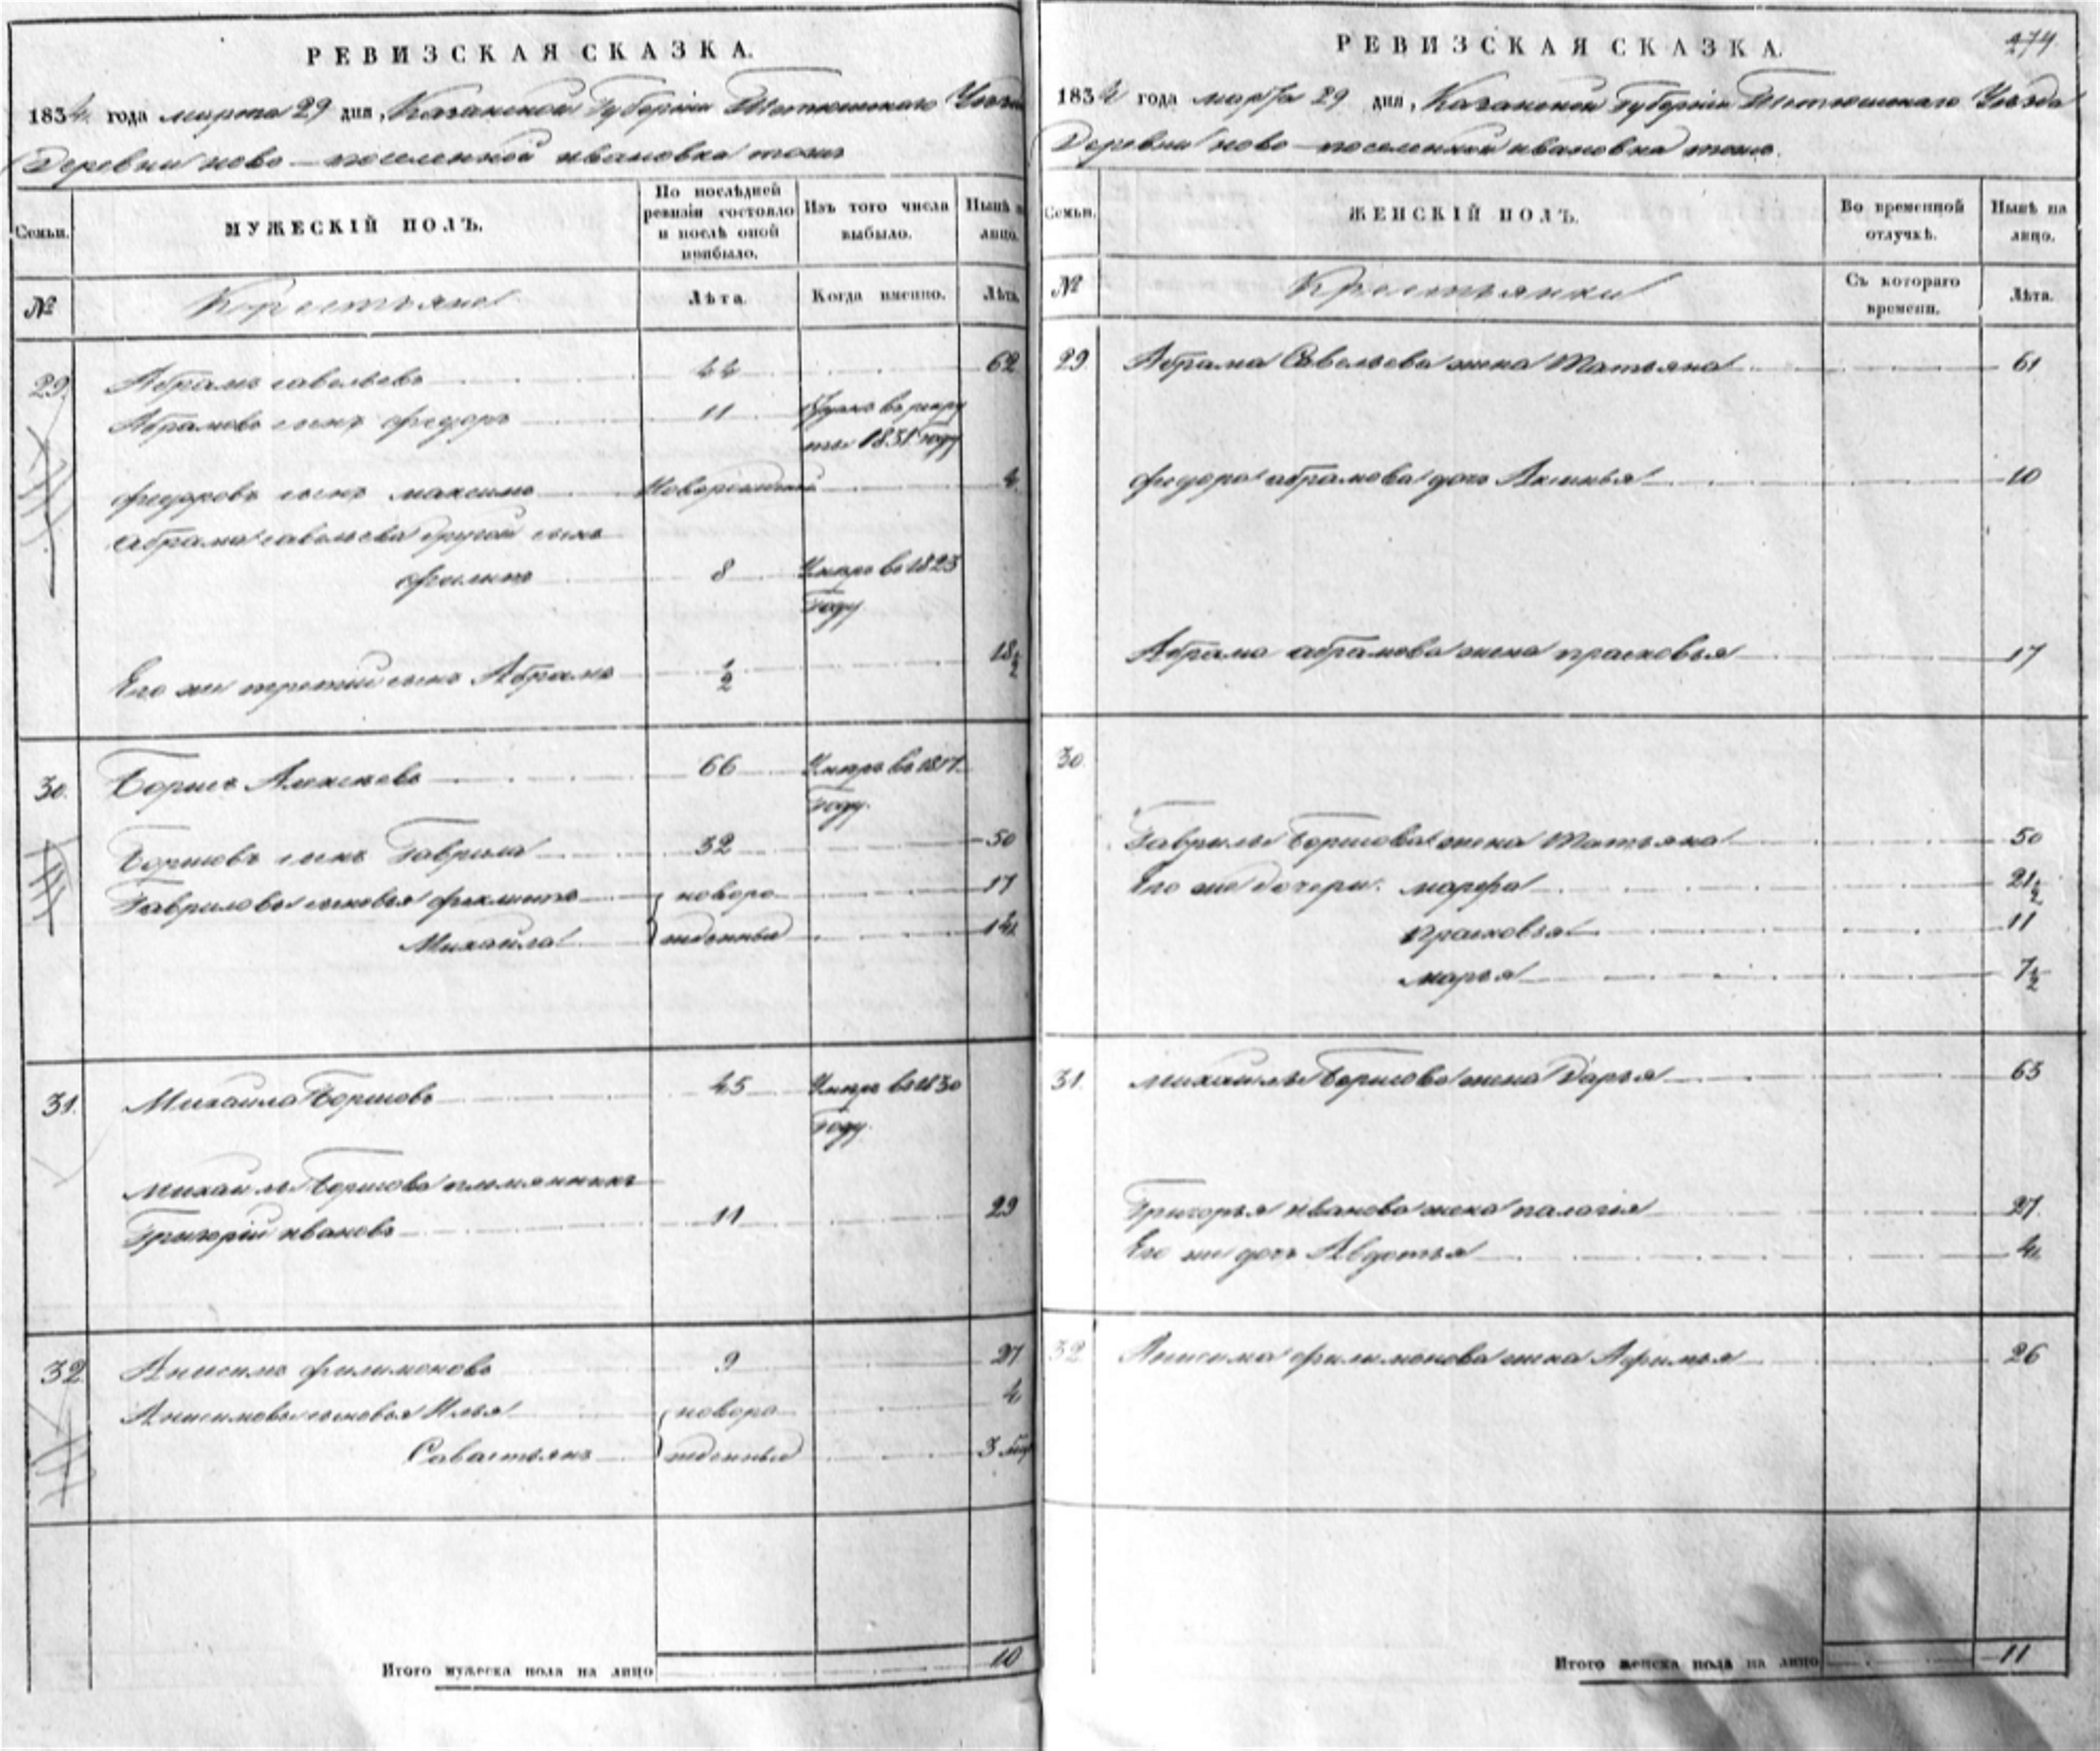 РЕВИЗСКАЯ СКАЗКА.
1834 года марта 29 дня, Казанской Губернiи Тетюшскаго Уезда
Деревни ново-поселенной ивановка тожъ
Семьи.
МУЖЕСКIЙ ПОЛЪ.
По послѣдней ревизiи состояло и послѣ оной прибыло.
Изъ того числа выбыло.
Нынѣ на лицо.
№
Крестьяне
Лѣта.
Когда именно.
Лѣта.
29. Абрамъ савельевъ 44 62
Абрамовъ сынъ федоръ 11 в рекру
ты 1831 году
федоровъ сынъ максимъ Новорожденной 4
абрама савельева другой сынъ
филипъ 8 Умеръ въ 1823
Году
Его же третий сынъ Абрамъ ½ 18½
30. Борисъ Алексеевъ 66 Умеръ въ 1817
Году.
Борисовъ сынъ Гаврила 32 50
Гавриловы сыновья новоро 17
Михайла жденныя 14
31. Михайла Борисовъ 45 Умеръ въ 1830
Году.
Михайлы Борисова племянникъ
Григорiй ивановъ 11 29
32 Анисимъ филимоновъ 9 27
Анисимовы сыновья Илья новоро 4
Савастьянъ жденныя 3
Итого мужеска пола на лицо 10
РЕВИЗСКАЯ СКАЗКА.
274
1834 года марта 29 дня, Казанской Губернiи Тетюшскаго Уезда
Деревни ново-поселенной ивановка тожъ.
Семьи.
ЖЕНСКIЙ ПОЛЪ.
Во временной отлучкѣ.
Нынѣ на лицо.
№
Крестьянки
Съ котораго времени.
Лѣта.
29. Абрама Савельева жена Татьяна 61
федора абрамова дочь Аксинья 10
Абрама абрамова жена прасковья 17
30.
Гаврилы Борисова жена Татьяна 50
Его же дочери: марфа 21½
прасковья 11
марья 7½
31. михайлы Борисова жена Дарья 63
Григорья иванова жена палагiя 27
Его же дочь Авдотья 4
32. Анисима филимонова жена Афимья 26
Итого женска пола на лицо 11